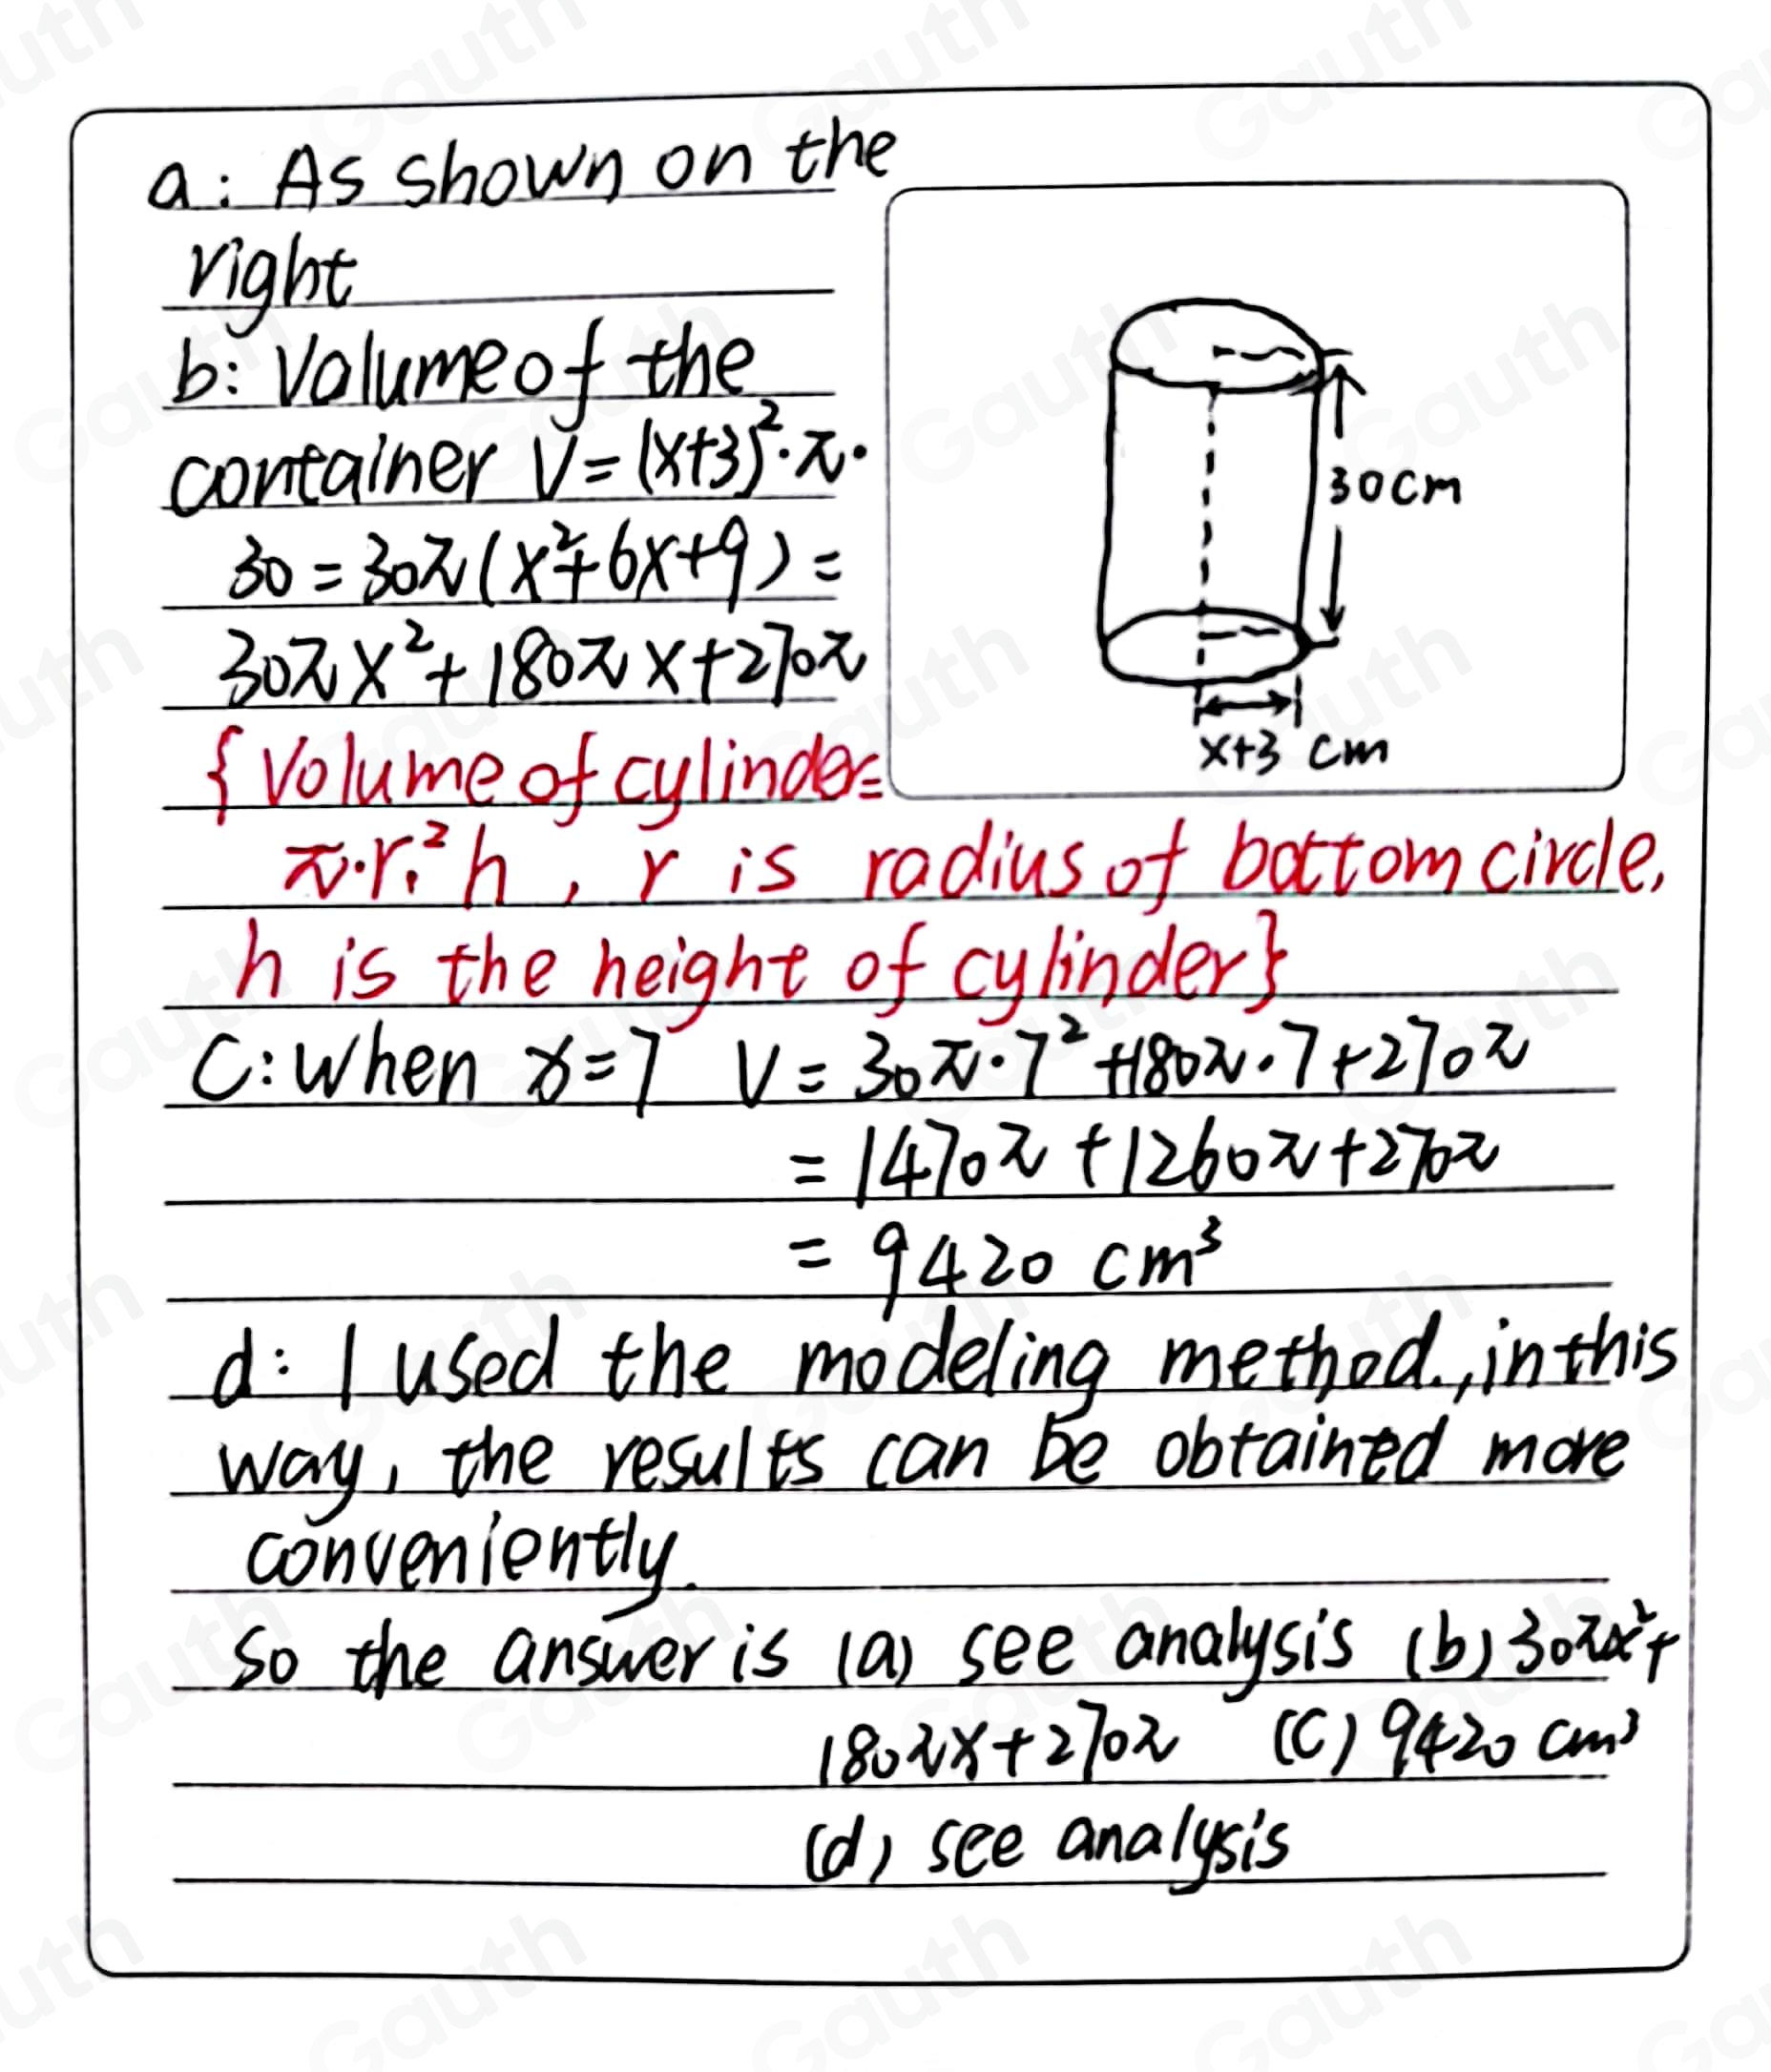 a: As shown on the
right
b: Volume of the
container V = (x+3)²·π·
30 = 30π(x²+6x+9) =
30πx²+180πx+270π
{Volume of cylinder=
π·r²·h, r is radius of bottom circle,
h is the height of cylinder}
C: When x=7 V = 30π·7²+180π·7+270π
= 1470π+1260π+270π
= 9420 cm³
d: I used the modeling method., in this
way, the results can be obtained more
conveniently.
So the answer is (a) see analysis (b) 30πx²+
180πx+270π (C) 9420 cm³
(d) see analysis
30cm
x+3 cm
Gauth